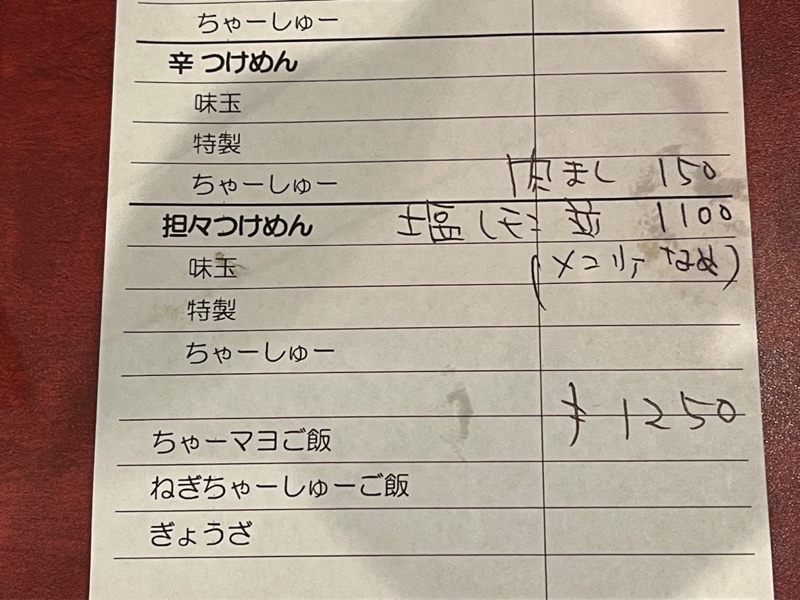 ちゃーしゅー
辛つけめん
味玉
特製
ちゃーしゅー 肉まし 150
担々つけめん 塩レモン 並 1100
味玉
特製
ちゃーしゅー
¥1250
ちゃーマヨご飯
ねぎちゃーしゅーご飯
ぎょうざ